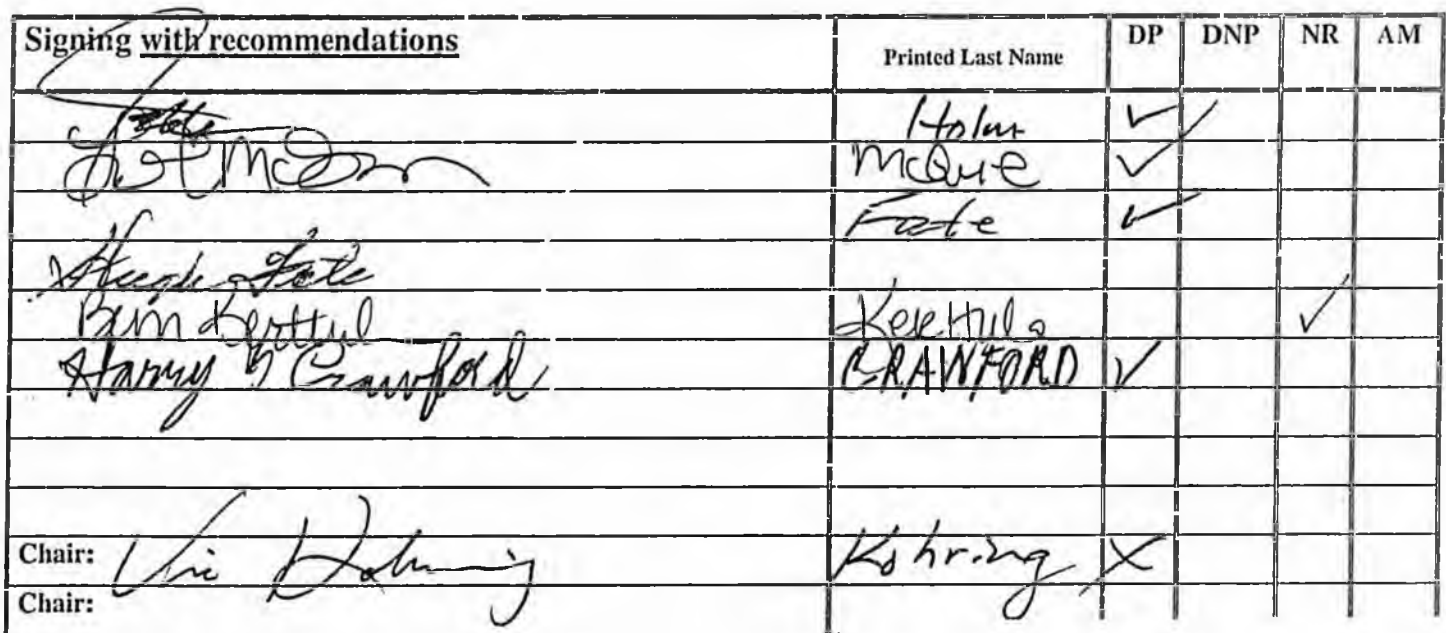 Signing with recommendations Printed Last Name DP DNP NR AM
Holm ✓
McGuire ✓
Fate ✓
Hugh Fate
Kerttula ✓
Harry Crawford CRAWFORD ✓
Chair: Vic Kohring Kohring X
Chair: